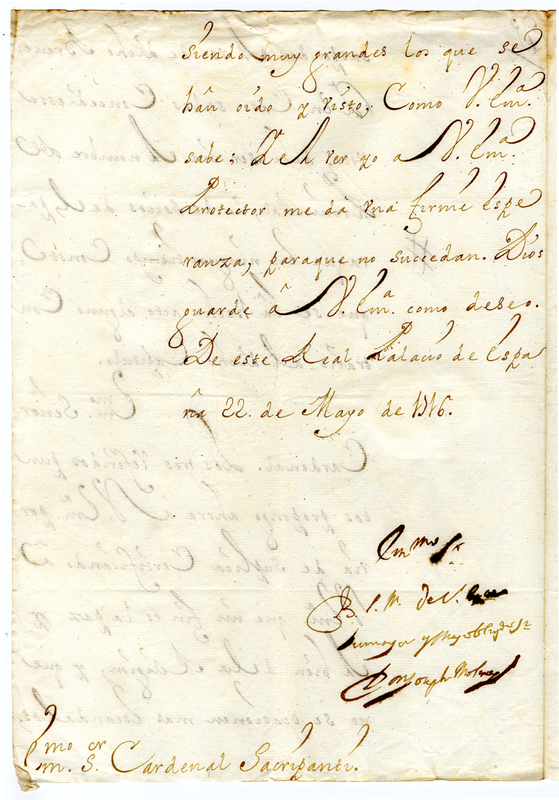 siendo muy grandes los que se
han oido y visto, Como V. Em.ª
sabe; De el ver yo a V. Em.ª
Protector me dà vna firme espe
ranza, paraque no succedan. Dios
guarde â V. Em.ª como deseo.
De este Real Palacio de Espa
ña 22. de Mayo de 1716.
Em.mo S.r
B. l. M. de V. Em.ª
su mayor y mas oblig.do S.r
Don Joseph Molines
Em.mo S.or Cardenal Sacripanti.